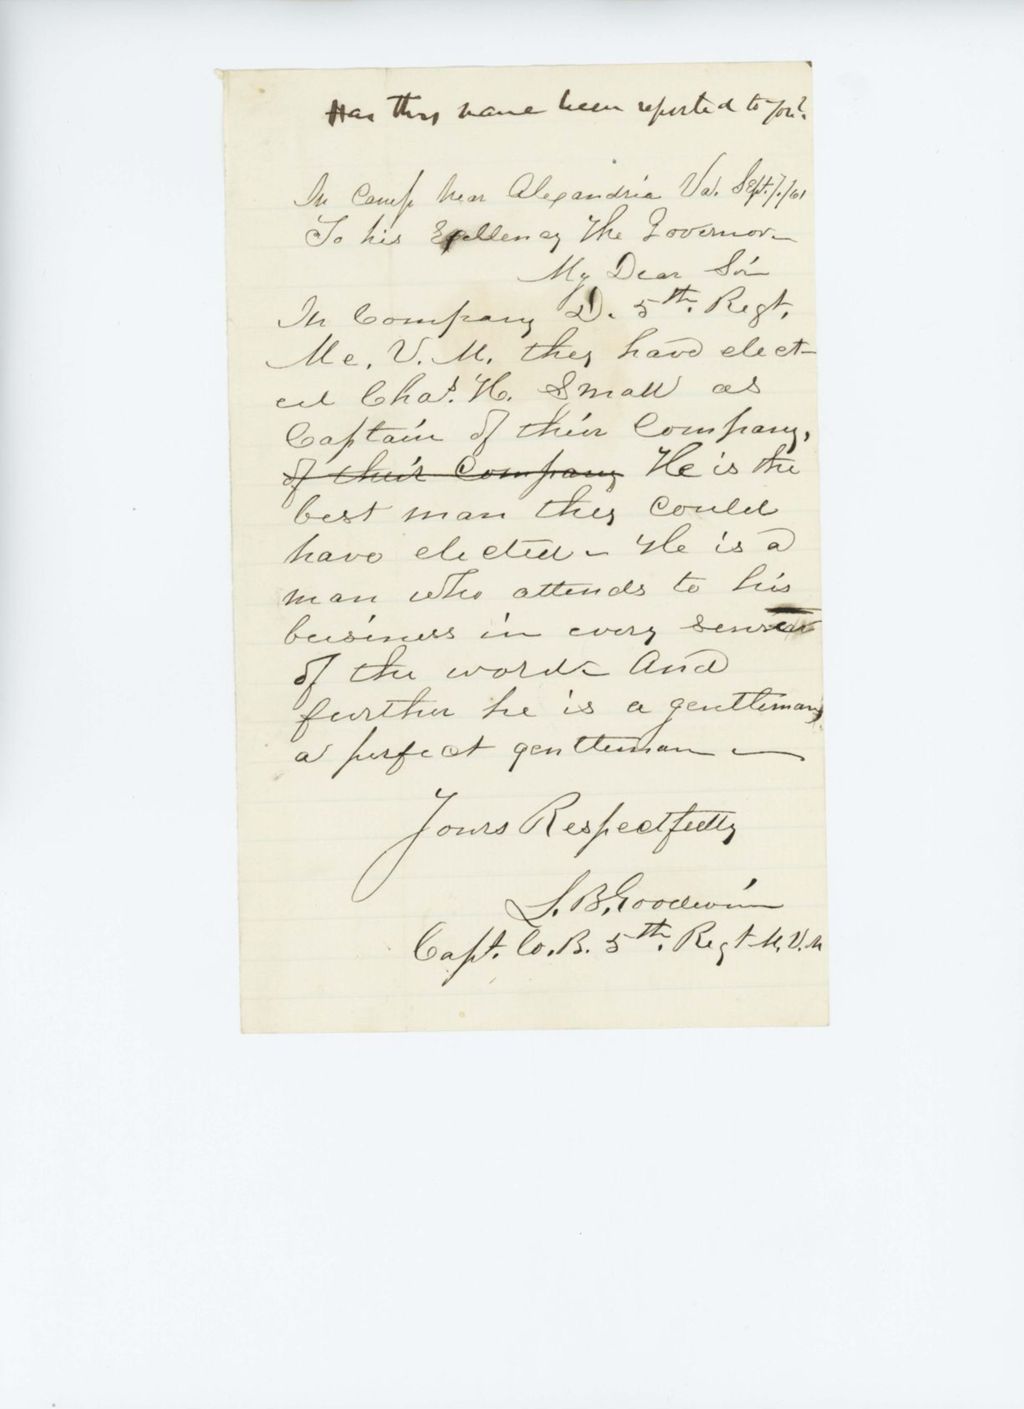 Has this name been reported to you?
In Camp Near Alexandria Va. Sept. 7./61
To his Exellency The Governor-
My Dear Sir
In Company D. 5th. Regt.
Me. V. M. they have elect-
ed Chas. H. Small as
Captain of their Company,
of their Company He is the
best man they could
have elected - He is a
man who attends to his
business in every sense
of the word - And
further he is a gentleman,
a perfect gentleman -
Yours Respectfully
S. B. Goodwin
Capt. Co. B. 5th. Regt M. V. M